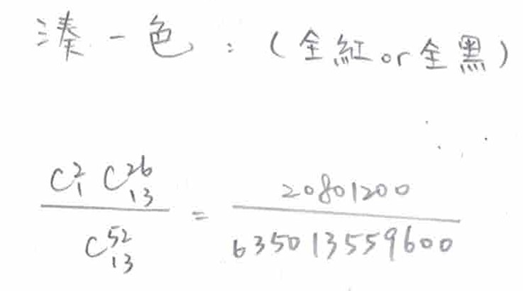 湊一色：（全紅or全黑）
C²₁ C²⁶₁₃ / C⁵²₁₃ = 20801200 / 635013559600